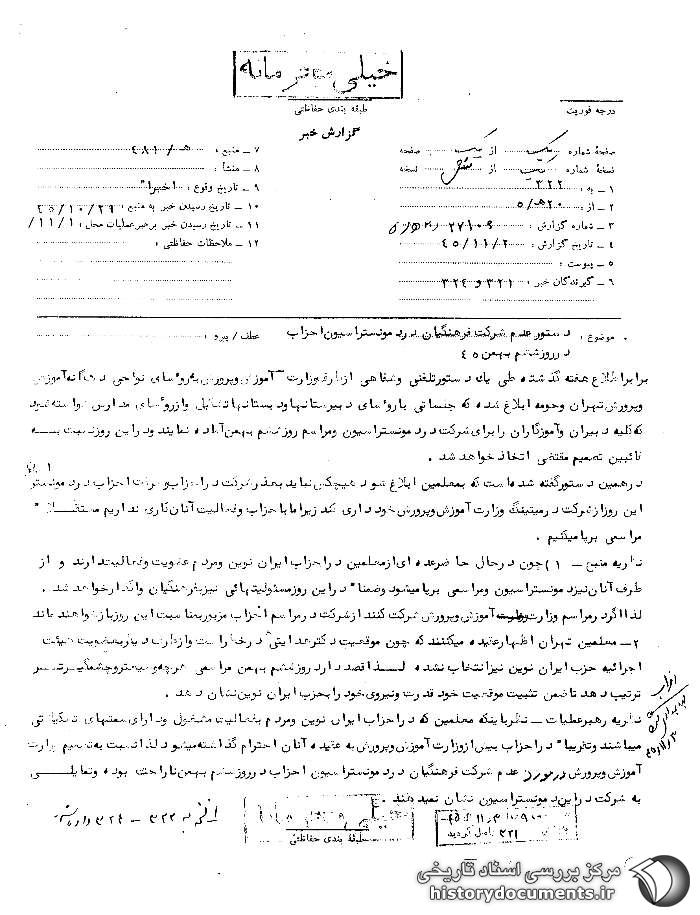 خیلی محرمانه
طبقه بندی حفاظتی
درجه فوریت
گزارش خبر
صفحهٔ شماره یک از یک صفحه
نسخهٔ شماره از شش نسخه
۱ – به : ۳۲۲
۲ – از : ۲۰ھ۵
۳ – شماره گزارش : ۲۷۱۰۶
۴ – تاریخ گزارش : ۴۵/۱۱/۲
۵ – پیوست :
۶ – گیرندگان خبر : ۳۲۱ و ۳۲۴
۷ – منبع : ۴۸۱
۸ – منشأ :
۹ – تاریخ وقوع : اخیرا"
۱۰ – تاریخ رسیدن خبر به منبع : ۴۵/۱۰/۲۹
۱۱ – تاریخ رسیدن خبر برهبرعملیات محل : ۱۱/۱/
۱۲ – ملاحظات حفاظتی :
موضوع : دستور عدم شرکت فرهنگیان در دمونستراسیون احزاب
در روز ششم بهمن ۴۵
عطف / پیرو :
برابر اطلاع هفته گذشته طی یک دستور تلفنی وشفاهی از طرف وزارت آموزش وپرورش به روسای نواحی ده گانه آموزش
وپرورش تهران وحومه ابلاغ شده که جلساتی با روسای دبیرستانها ودبستانها تشکیل واز روسای مدارس خواسته شود
که کلیه دبیران وآموزگاران را برای شرکت در دمونستراسیون ومراسم روز ششم بهمن آماده نمایند ودر این روز نسبت به
غائبین تصمیم مقتضی اتخاذ خواهد شد .
در همین دستور گفته شده است که بمعلمین ابلاغ شود هیچکس نباید بعذر شرکت در احزاب احزاب در دمونستر
این روز از شرکت در میتینگ وزارت آموزش وپرورش خود داری کند زیرا ما با حزب وفعالیت آنان کاری نداریم مستقلا "
مراسمی برپا میکنیم .
نظریه منبع – ۱) چون در حال حاضر عده ای از معلمین در احزاب ایران نوین ومردم عضویت وفعالیت دارند و از
طرف آنان نیز دمونستراسیون ومراسمی برپا میشود وضمنا" در این روز مسئولیتهائی نیز بفرهنگیان واگذار خواهد شد .
لذا اگر در مراسم وزارت آموزش وپرورش شرکت کنند از شرکت در مراسم احزاب مزبور بمناسبت این روز باز خواهند ماند
۲ – معلمین تهران اظهار عقیده میکنند که چون موقعیت دکتر هدایتی در خطر است واز طرف دیگر بعضویت هیئت
اجرائیه حزب ایران نوین نیز انتخاب نشده لذا قصد دارد روز ششم بهمن مراسمی هرچه وسیعتر وچشمگیرتر
ترتیب دهد تا ضمن تثبیت موقعیت خود قدرت ونیروی خود را بحزب ایران نوین نشان دهد .
نظریه رهبر عملیات – نظر باینکه معلمین که در احزاب ایران نوین ومردم بفعالیت مشغول ودارای سمتهای تشکیلاتی
میباشند وتقریبا" در احزاب بیش از وزارت آموزش وپرورش به عقیده آنان احترام گذاشته میشود لذا نسبت به تصمیم وزارت
آموزش وپرورش در مورد عدم شرکت فرهنگیان در دمونستراسیون احزاب در روز ششم بهمن ناراحت بوده وتمایلی
به شرکت در این دمونستراسیون نشان نمیدهند .
طبقهٔ بندی حفاظتی
۳۲۱ واصل گردید
مرکز بررسی اسناد تاریخی
historydocuments.ir